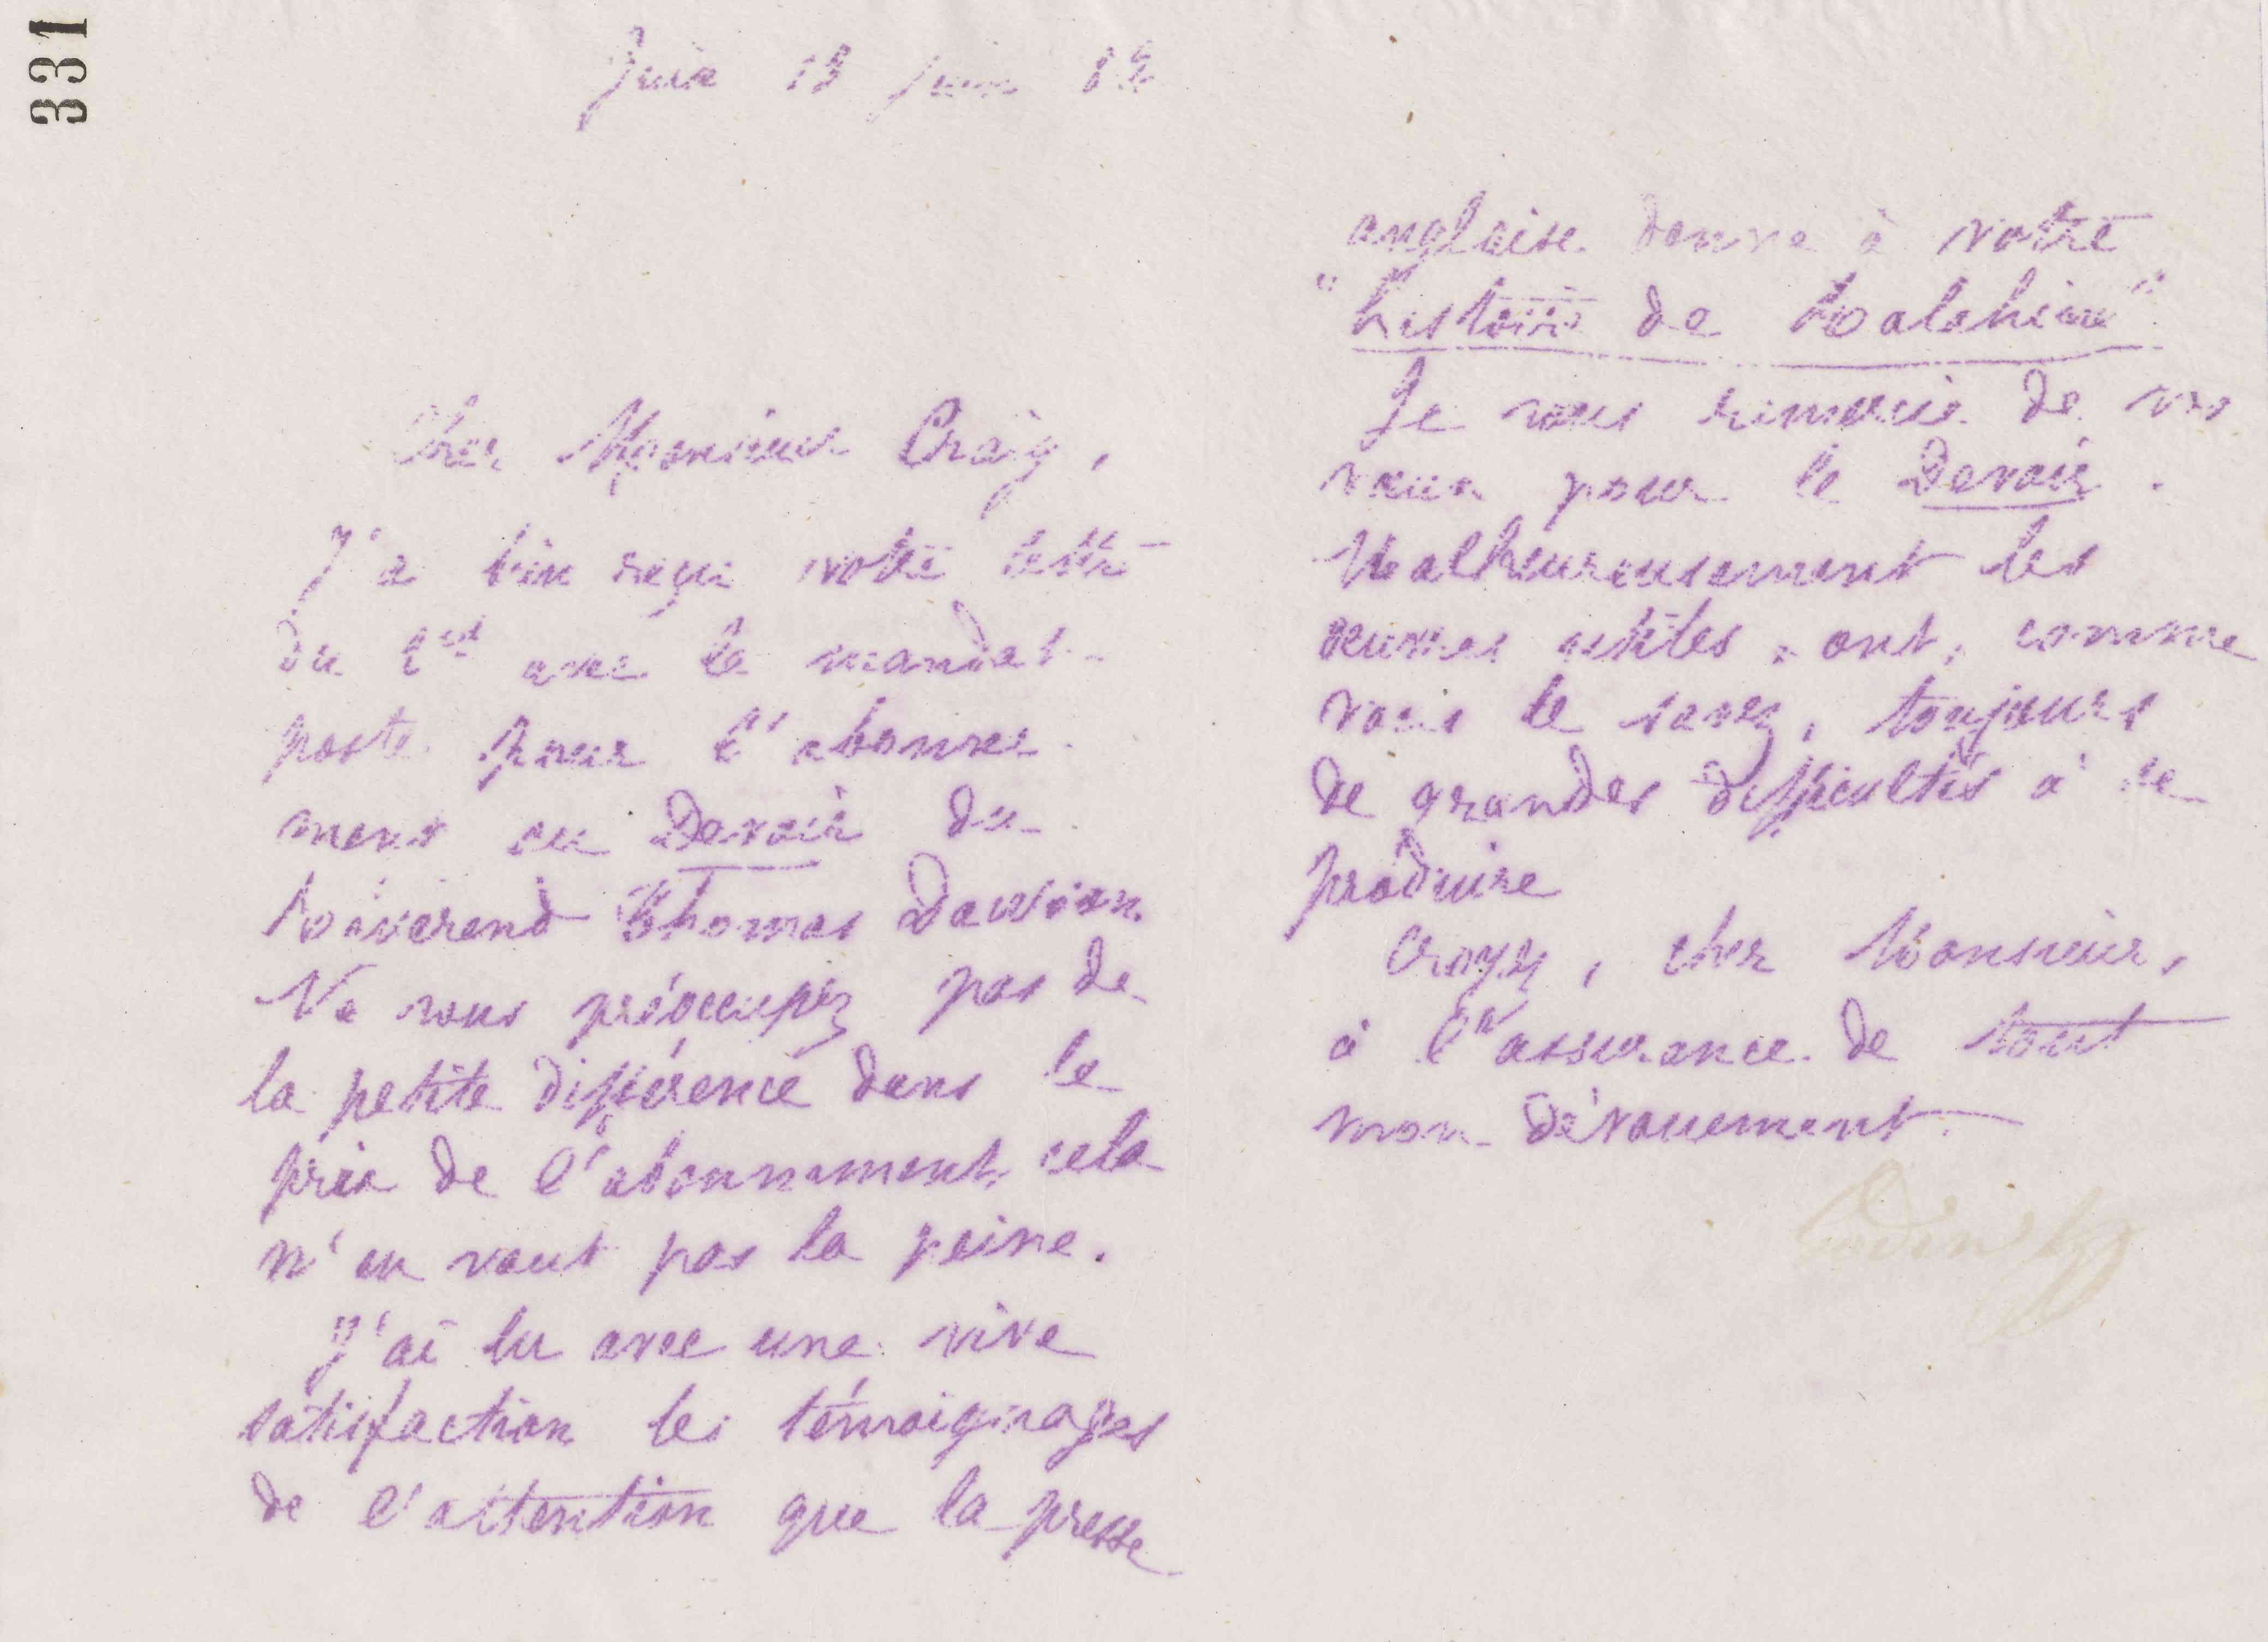 331
Guise 13 juin 82
Cher Monsieur Craig,
J'ai bien reçu votre lettre
du 1er avec le mandat-
poste pour l'abonne-
ment au Devoir du
Révérend Thomas Dawson.
Ne vous préoccupez pas de
la petite différence dans le
prix de l'abonnement, cela
n'en vaut pas la peine.
J'ai lu avec une vive
satisfaction les témoignages
de l'attention que la presse
anglaise donne à votre
"histoire de Ralahine"
Je vous remercie de vos
vœux pour le Devoir.
Malheureusement les
œuvres utiles, ont, comme
vous le savez, toujours
de grandes difficultés à se
produire
Croyez, cher Monsieur,
à l'assurance de tout
mon dévouement
Godin